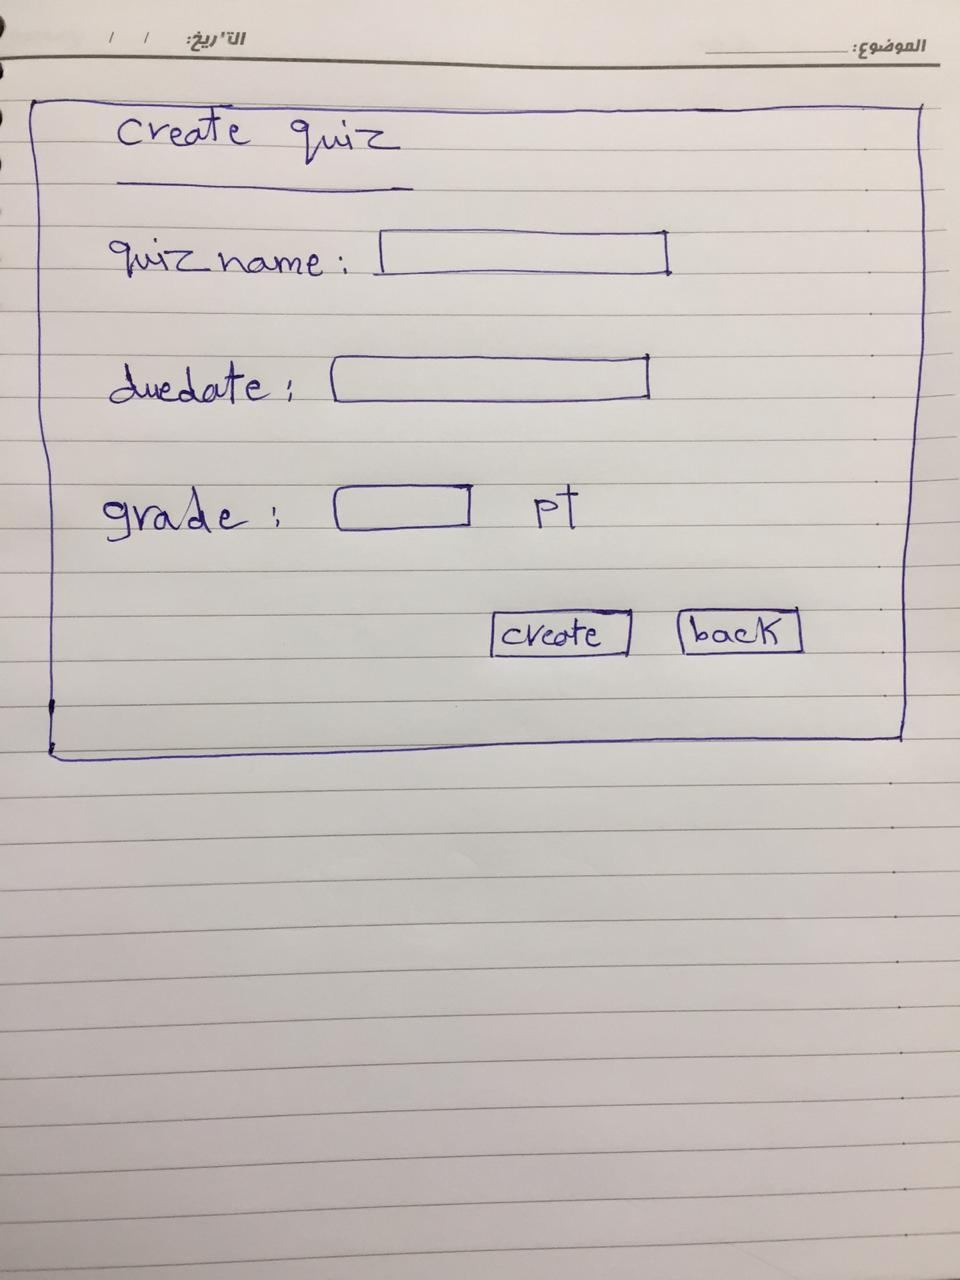 الموضوع: التاريخ: / /
create quiz
quiz name :
duedate :
grade : pt
create back